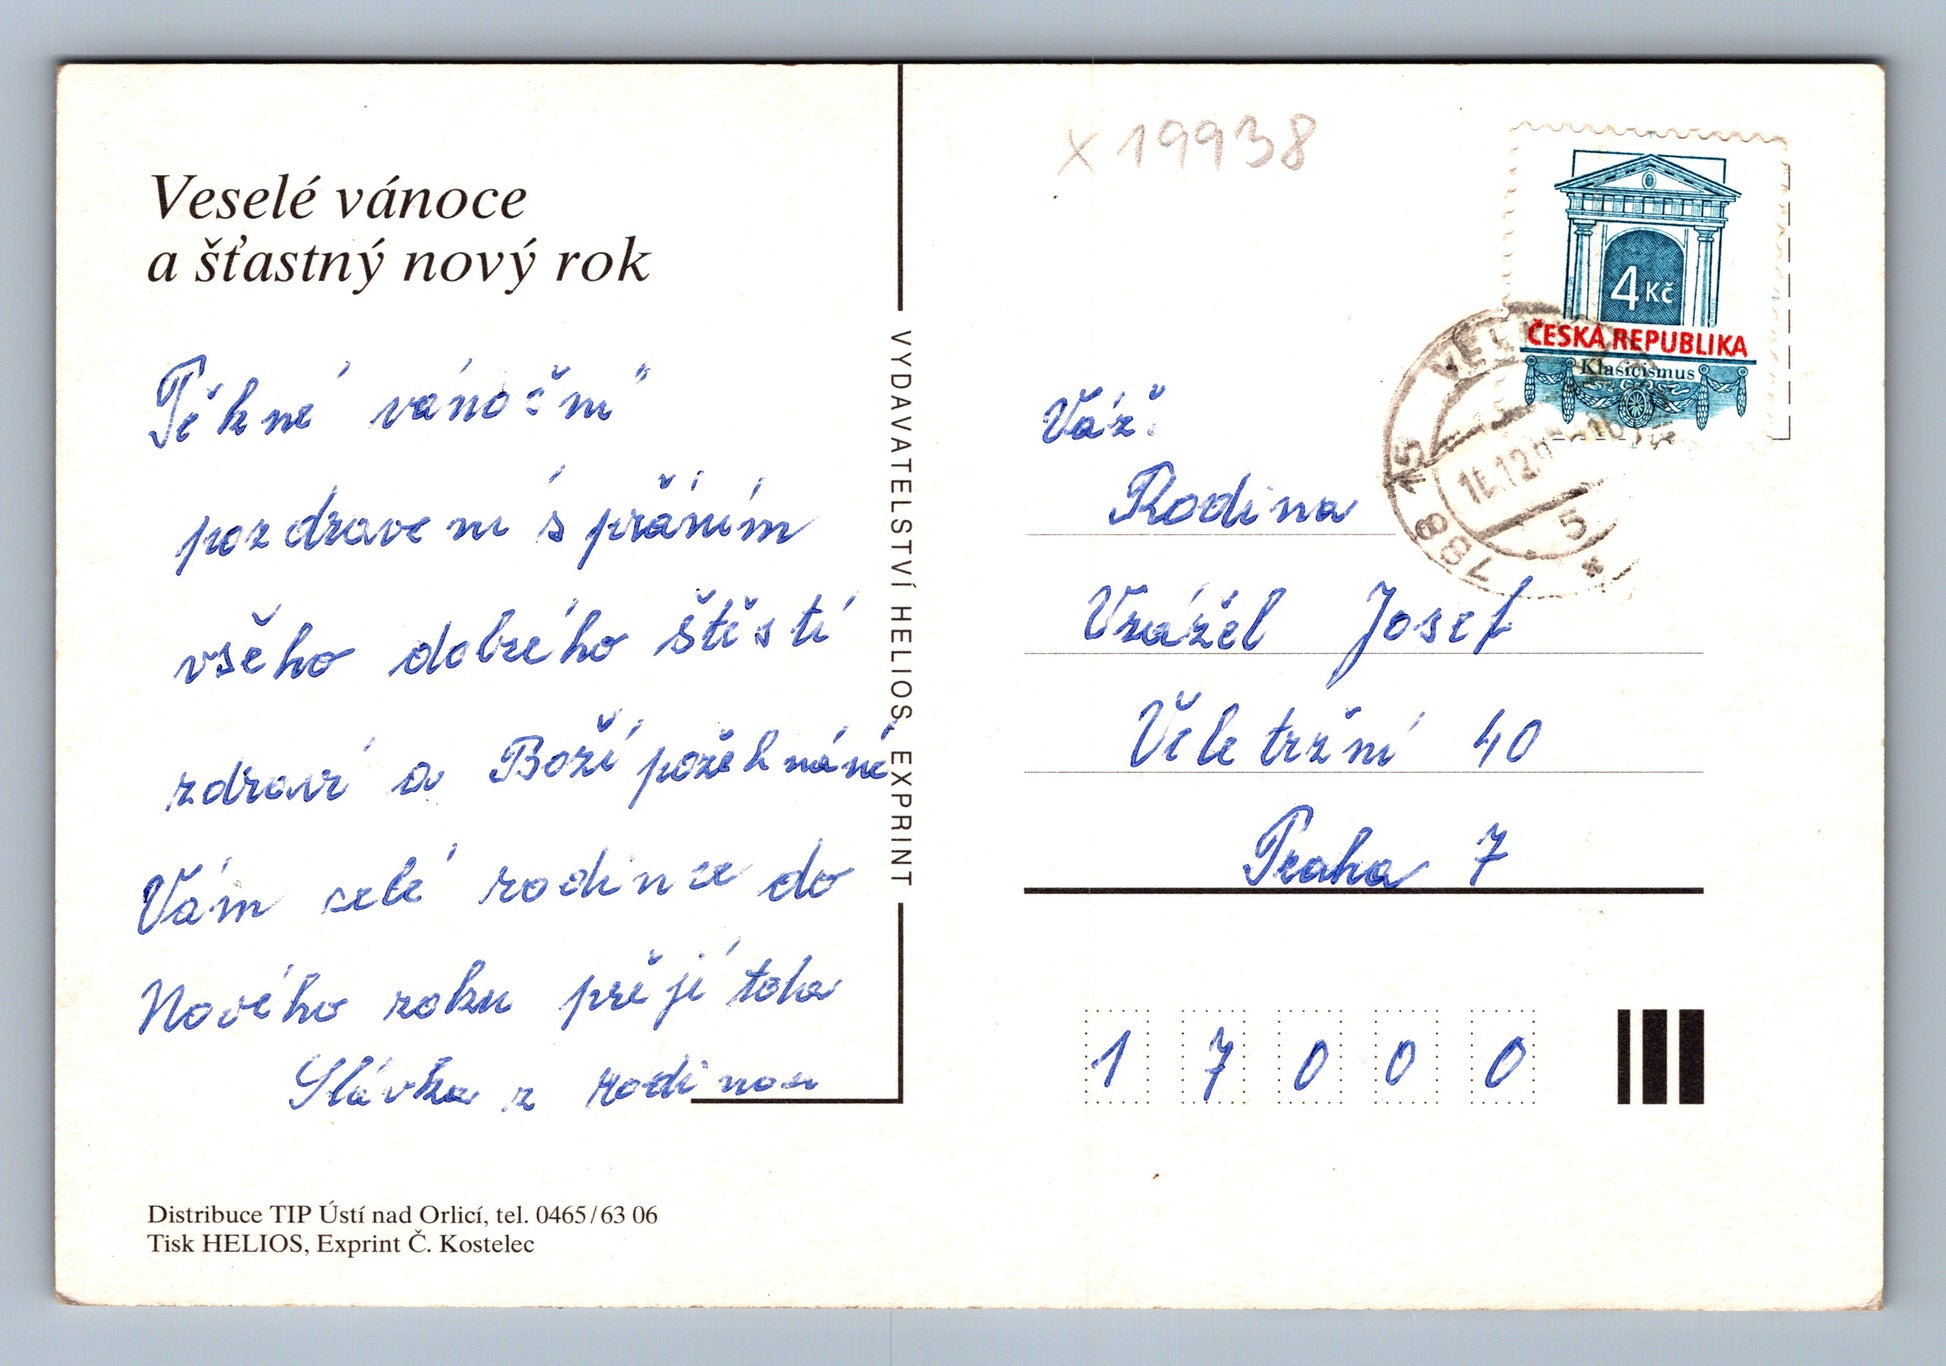 Veselé vánoce
a šťastný nový rok
Pěkné vánoční
pozdravení s přáním
všeho dobrého štěstí
zdraví a Boží požehnání
Vám celé rodince do
Nového roku přejí teta
Slávka z rodinou
Distribuce TIP Ústí nad Orlicí, tel. 0465/63 06
Tisk HELIOS, Exprint Č. Kostelec
VYDAVATELSTVÍ HELIOS, EXPRINT
x 19938
4 Kč
ČESKÁ REPUBLIKA
Klasicismus
788 15
5
Váž.
Rodina
Vrážel Josef
Veletržní 40
Praha 7
1 7 0 0 0